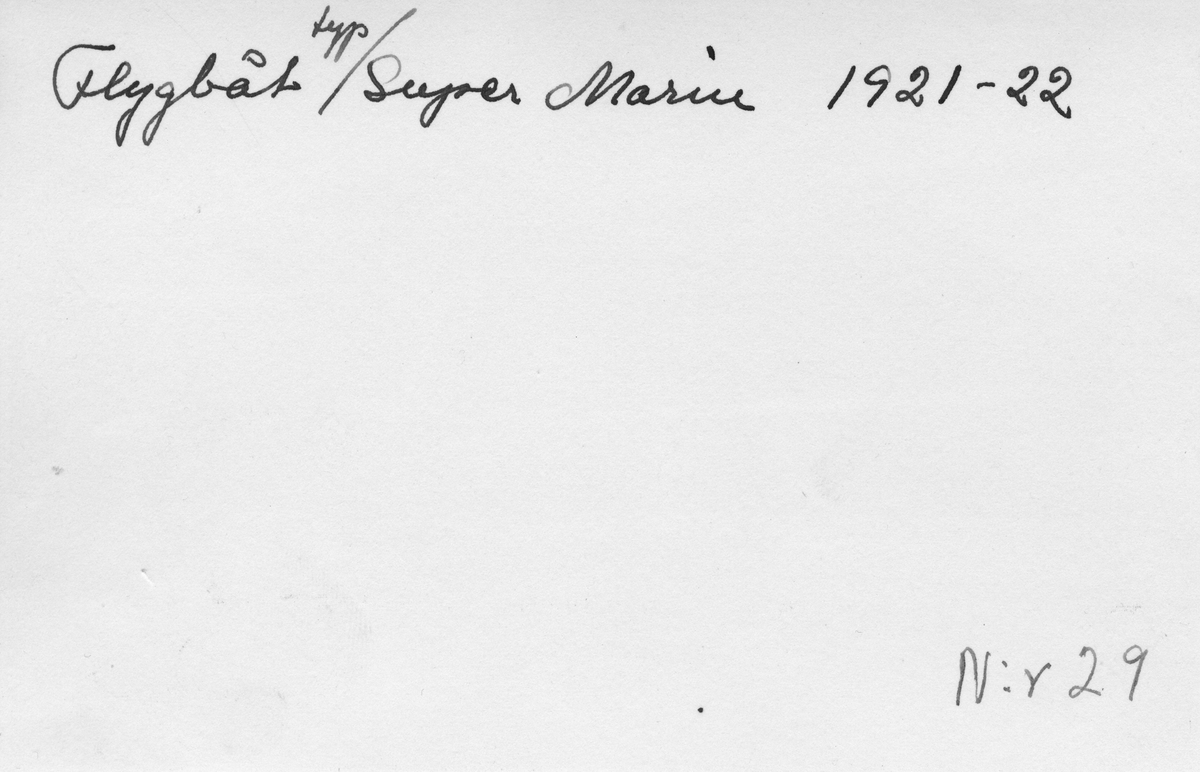 Flygbåt typ/Super Marin 1921-22
N:r 29